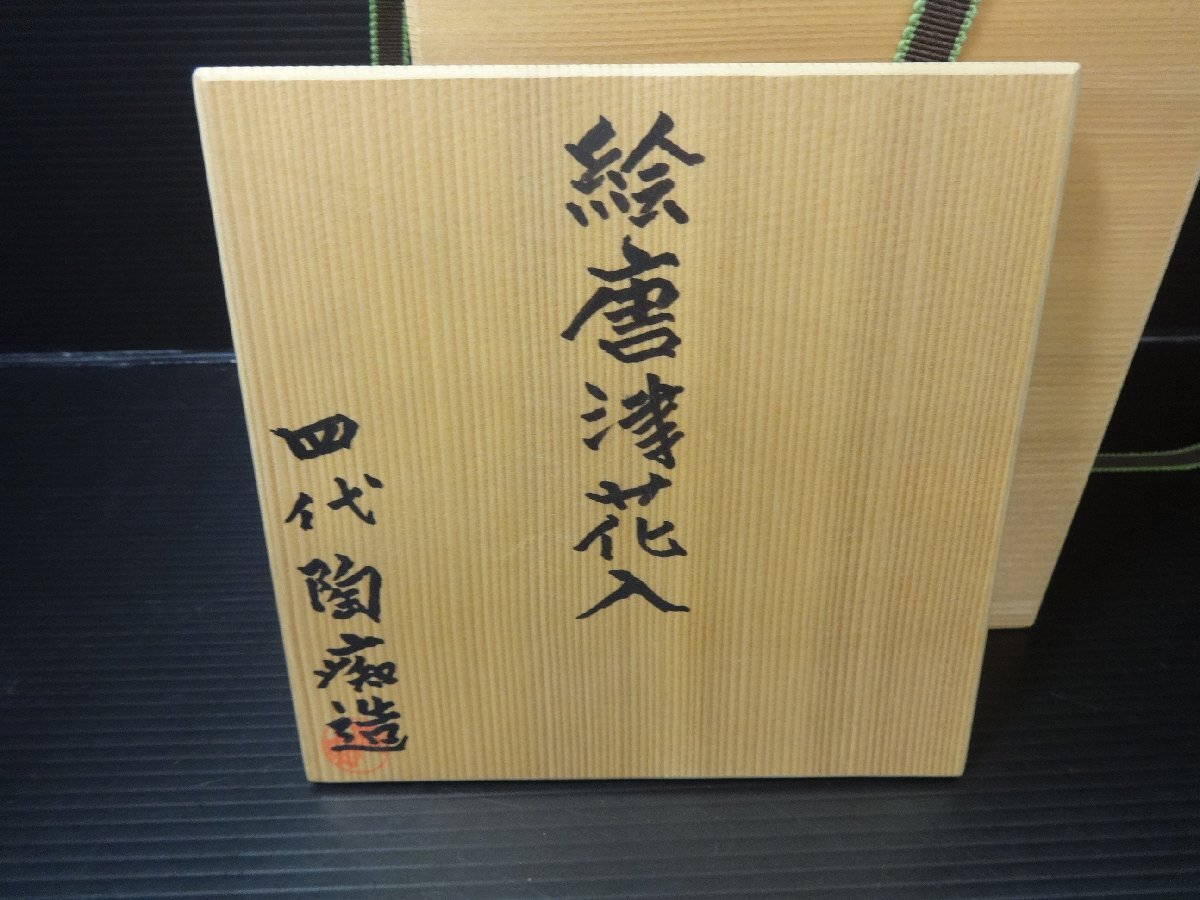 絵唐津花入
四代陶痴造